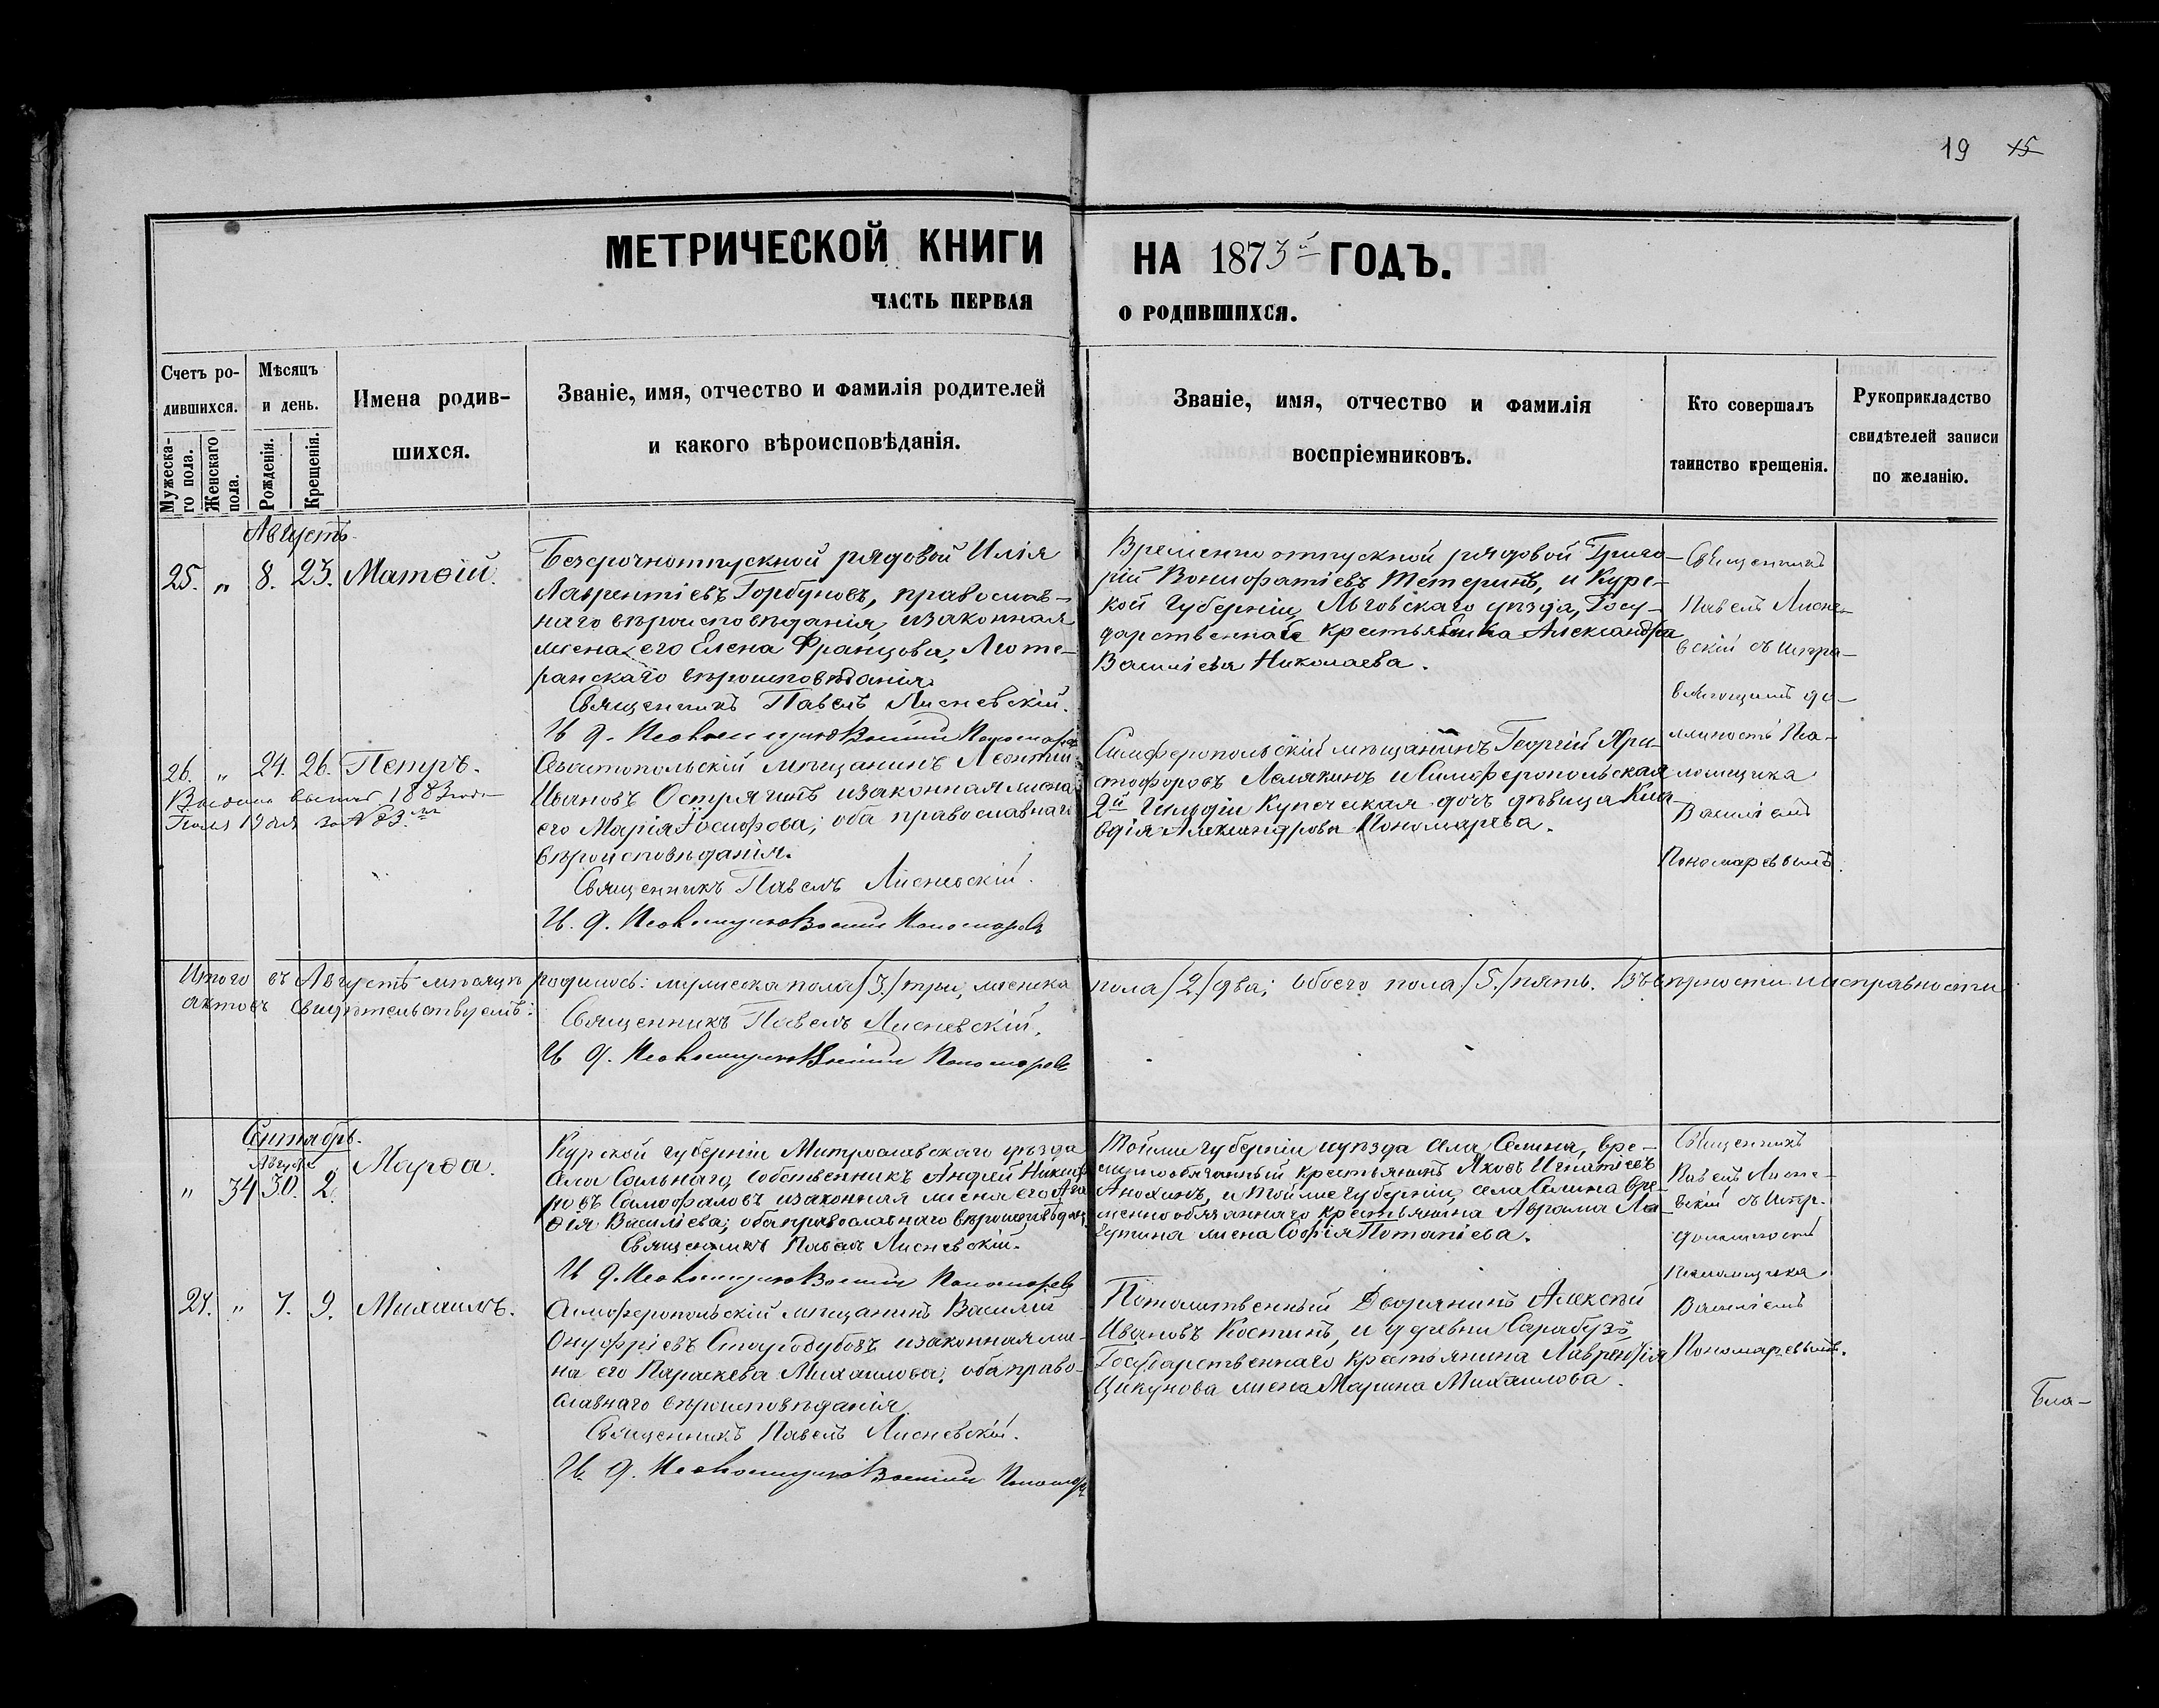 19 15
МЕТРИЧЕСКОЙ КНИГИ НА 1873й ГОДЪ.
ЧАСТЬ ПЕРВАЯ О РОДИВШИХСЯ.
Счетъ ро-
дившихся.
Мужеска-
го пола.
Женскаго
пола.
Мѣсяцъ
и день.
Рожденія.
Крещенія.
Имена родив-
шихся.
Званіе, имя, отчество и фамилія родителей
и какого вѣроисповѣданія.
Званіе, имя, отчество и фамилія
воспріемниковъ.
Кто совершалъ
таинство крещенія.
Рукоприкладство
свидѣтелей записи
по желанію.
Августъ
25. „ 8. 23. Матѳій.
Безсрочноотпускной рядовой Илія
Лаврентіевъ Горбуновъ, православ-
наго вѣроисповѣданія, и законная
жена его Елена Францова, Люте-
ранскаго вѣроисповѣданія.
Священникъ Павелъ Лисневскій.
И. д. Псаломщика Василій Пономарев
Временно отпускной рядовой Григо-
рій Вонифатіевъ Тетеринъ, и Курс-
кой Губерніи, Льговскаго уѣзда, Госу-
дарственная крестьянка Александра
Василіева Николаева.
Священникъ
Павелъ Лисне-
вскій съ испра-
вляющимъ до-
лжность Пса-
ломщика
Василіемъ
Пономаревымъ.
26. „ 24. 26. Петръ.
1883 года
Іюля 19 дня за № 83
Севастопольскій мѣщанинъ Леонтій
Ивановъ Острягинъ и законная жена
его Марія Іосифова; оба православнаго
вѣроисповѣданія.
Священникъ Павелъ Лисневскій.
И. д. Псаломщика Василій Пономаревъ
Симферопольскій мѣщанинъ Георгій Хри-
стофоровъ и Симферопольская
2й Гильдіи Купеческая дочь дѣвица Кла-
вдія Александрова Пономарева.
Итого въ Августѣ мѣсяцѣ родилось: мужеска пола /3/ три, женска пола /2/ два; обоего пола /5/ пять. Въ вѣрности и исправности
актовъ свидѣтельствуемъ:
Священникъ Павелъ Лисневскій.
И. д. Псаломщика Василій Пономаревъ
Сентябрь.
Августа
„ 34 30. 2. Марѳа.
Курской губерніи Митрославскаго уѣзда
села Сальнаго, собственникъ Андрей Никиф-
ровъ Самофаловъ и законная жена его Ага-
ѳія Василіева; оба православнаго вѣроисповѣдан.
Священникъ Павелъ Лисневскій.
И. д. Псаломщика Василій Пономаревъ
Той же губерніи и уѣзда села Селина, вре-
менно обязанный крестьянинъ Яковъ Игнатіевъ
Анохинъ, и той же губерніи, села Селина вре-
менно обязаннаго крестьянина Аврама
жена Софія Потапіева.
Священникъ
Павелъ Лисне-
вскій съ испр.
должность
псаломщика
Василіемъ
Пономаревымъ.
27. „ 7. 9. Михаилъ.
Симферопольскій мѣщанинъ Василій
Онуфріевъ Стародубовъ и законная же-
на его Параскева Михаилова; оба право-
славнаго вѣроисповѣданія.
Священникъ Павелъ Лисневскій.
И. д. Псаломщика Василій Пономар
Потомственный Дворянинъ Алексѣй
Ивановъ Костинъ, и деревни Сарабузъ
Государственнаго крестьянина Лаврентія
Цикунова жена Марина Михаилова.
Бла-